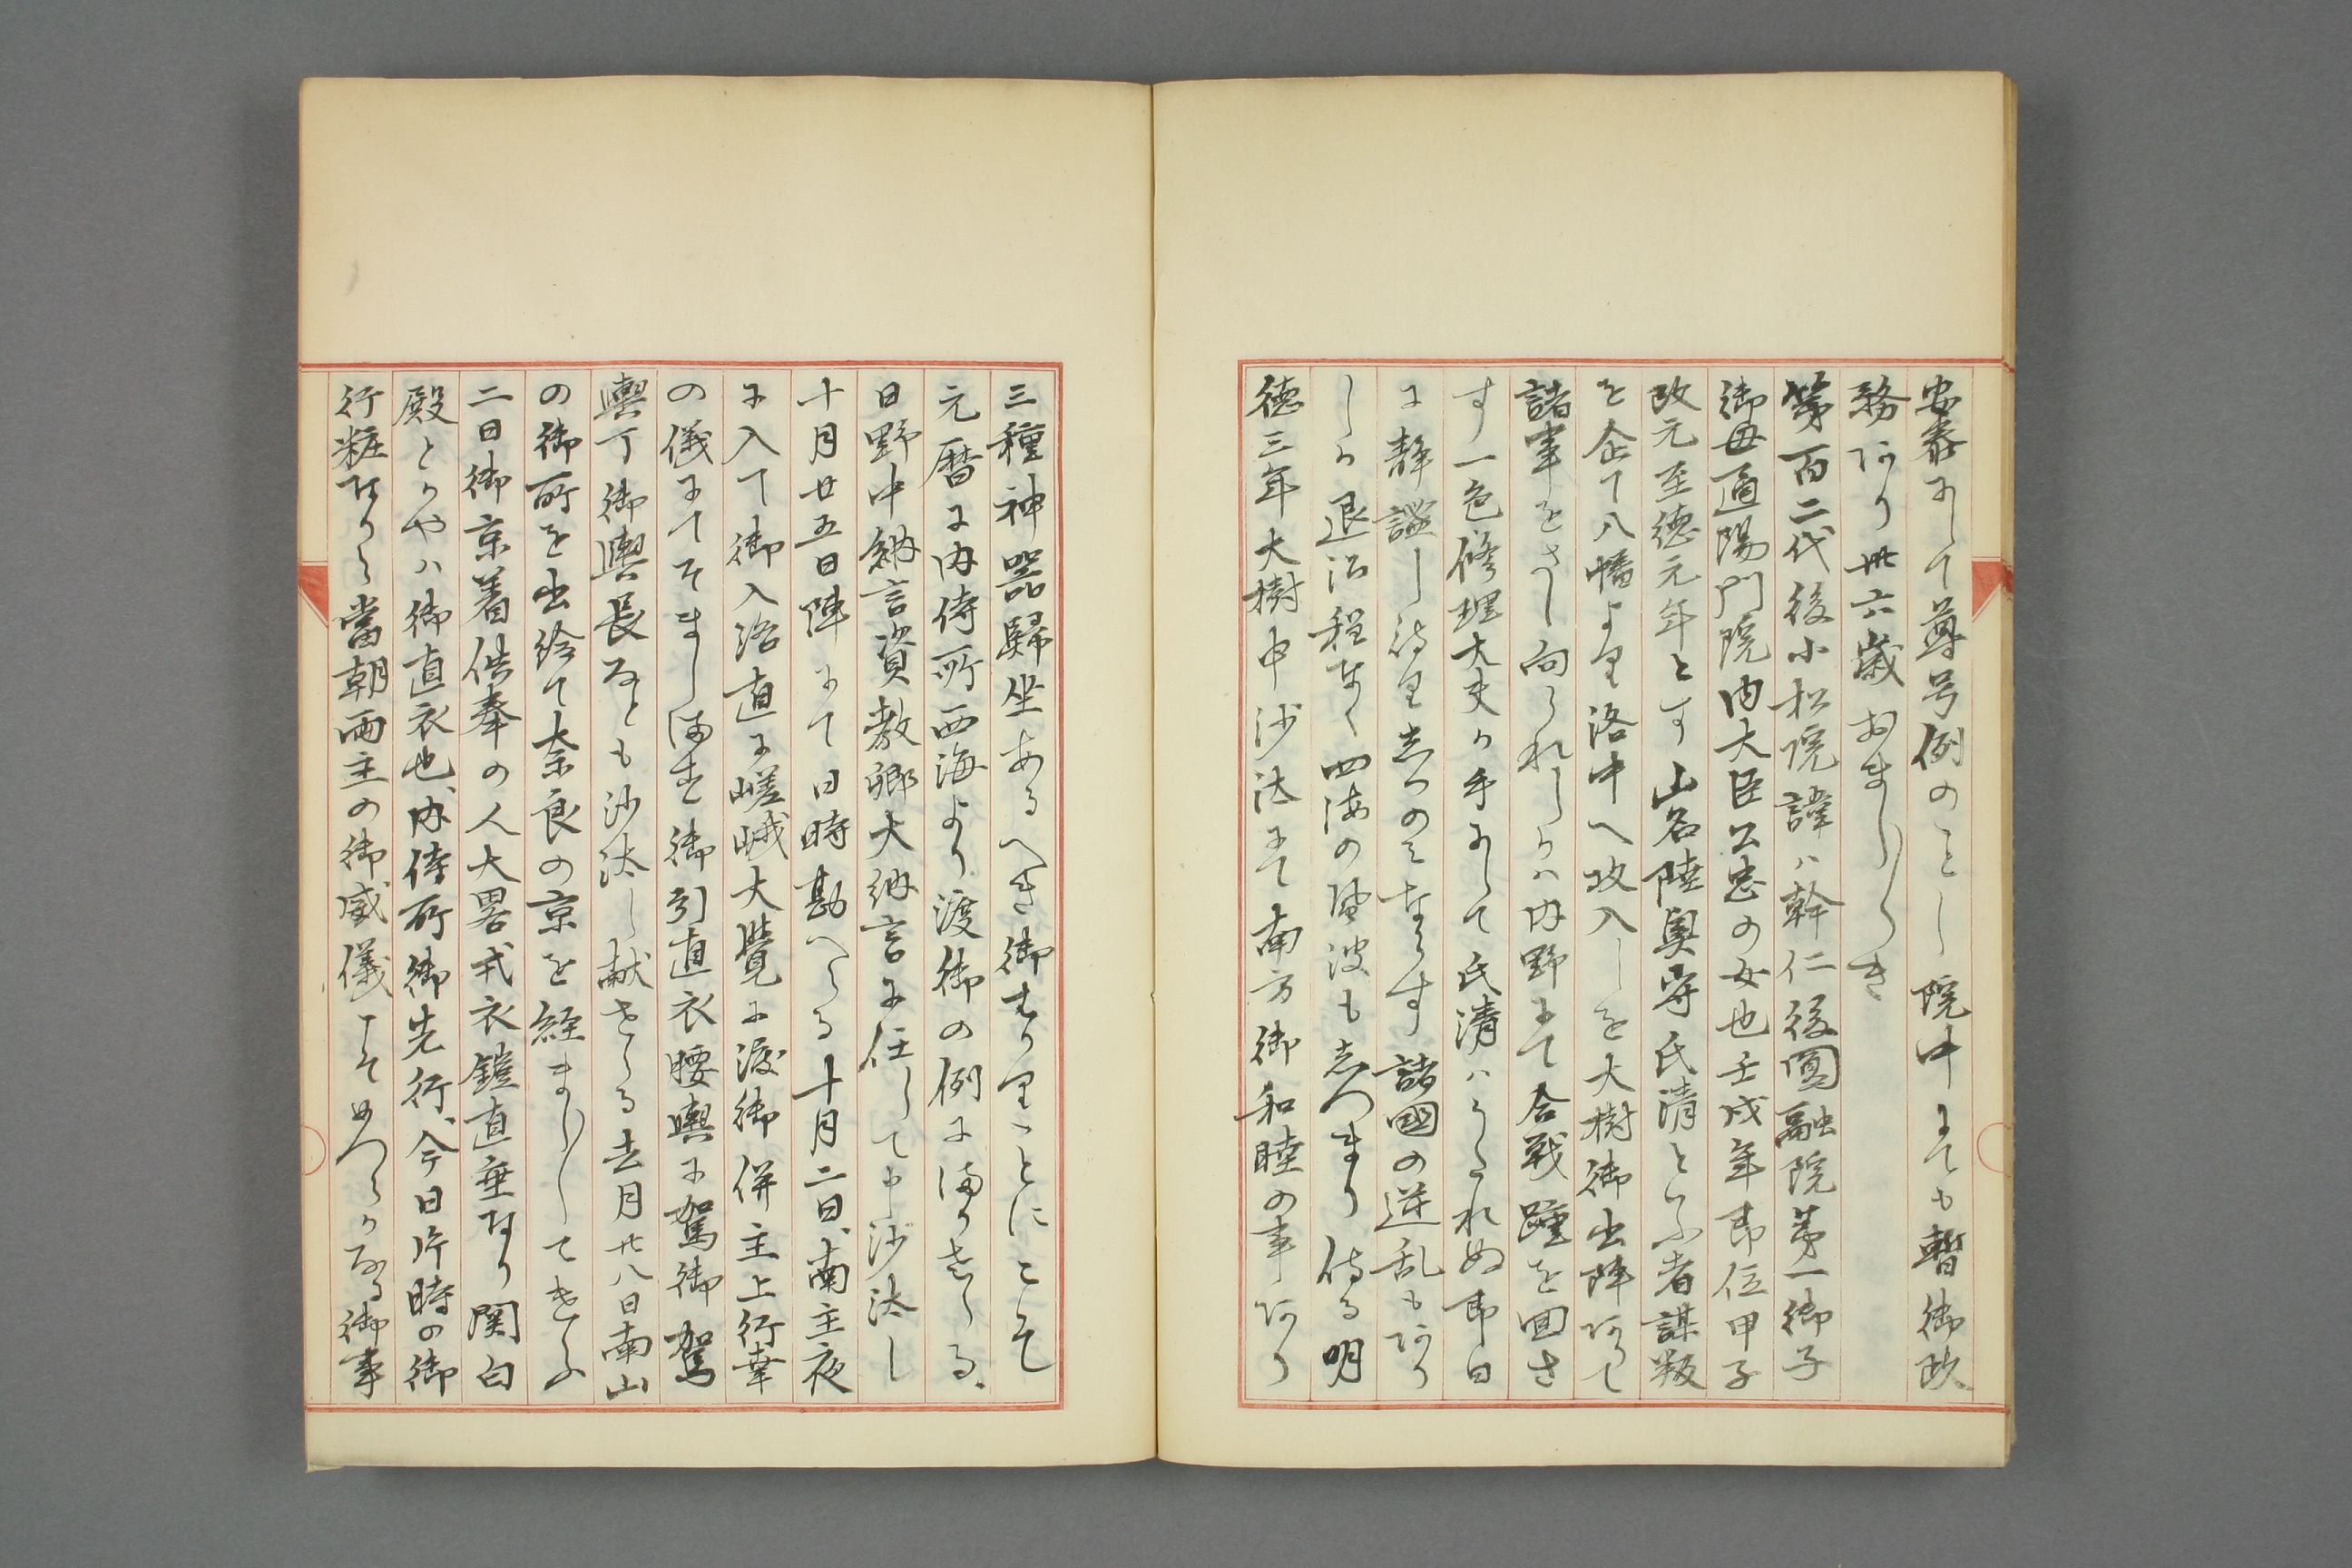 安泰にして尊号例のことし院中にても暫御政
務あり卅六歳おまし〳〵き
第百二代後小松院諱ハ幹仁後圓融院第一御子
御母通陽門院内大臣公忠の女也壬戌年即位甲子
改元至徳元年とす山名陸奥守氏清といふ者謀叛
を企て八幡より洛中へ攻入しを大樹御出陣ありて
諸軍をさし向られしかハ内野にて合戦踵を回さ
す一色修理大夫か手にして氏清ハうたれぬ即日
に静謐し侍り志かのみならす諸國の逆乱もあり
しか退治程なく四海の風波も志つまり侍る明
徳三年大樹申沙汰にて南方御和睦の事あり
三種神器歸坐あるへき御はかりことにこそ
元暦に内侍所西海より渡御の例にまかせらる、
日野中納言資教卿大納言に任して申沙汰し
十月廿五日陣にて日時勘へらる十月二日、南主夜
に入て御入洛直に嵯峨大覺に渡御併主上行幸
の儀にてそましませ御引直衣腰輿に駕御駕
輿丁御輿長なとも沙汰し献せらる去月廿八日南山
の御所を出給て奈良の京を経ましましてけふ
二日御京着供奉の人大畧戎衣鎧直垂なり関白
殿とかやハ御直衣也、内侍所御先行、今日片時の御
行粧なから當朝両主の御威儀こそめつらかなる御事